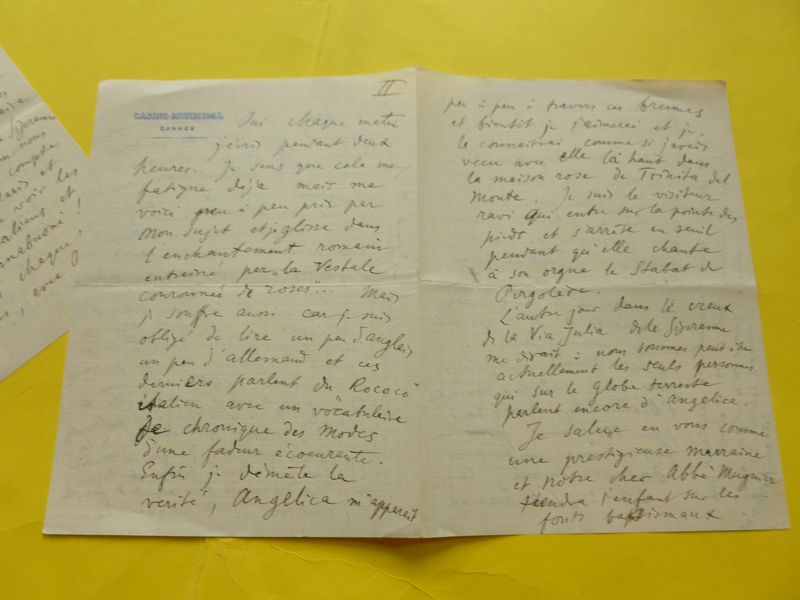 II
CASINO MUNICIPAL
CANNES
Oui chaque matin
j'écris pendant deux
heures. Je sens que cela me
fatigue déjà mais me
voici peu à peu pris par
mon sujet et je glisse dans
l'enchantement romain
entrainé par "la Vestale
couronnée de roses"... Mais
je souffre aussi car je suis
obligé de lire un peu d'anglais
un peu d'allemand et ces
derniers parlent du Rococo
italien avec un vocabulaire
de chronique des modes
d'une fadeur écoeurante.
Enfin je démêle la
verité, Angelica m'apparait
peu à peu à travers ces brumes
et bientôt je l'aimerai et je
le connaitrai comme si j'avais
vecu avec elle là haut dans
la maison rose de Trinita del
Monte. Je suis le visiteur
ravi qui entre sur la pointe des
pieds et s'arrête en seuil
pendant qu'elle chante
à son orgue le Stabat de
Pergolèse.
L'autre jour dans le
de la Via Julia
me disait : nous sommes peut être
actuellement les seuls personnes
qui sur le globe terrestre
parlent encore d'Angelica.
Je salue en vous comme
une prestigieuse marraine
et notre cher Abbé Mugnier
tiendra l'enfant sur les
fonts baptismaux.
voir les
et
chaque